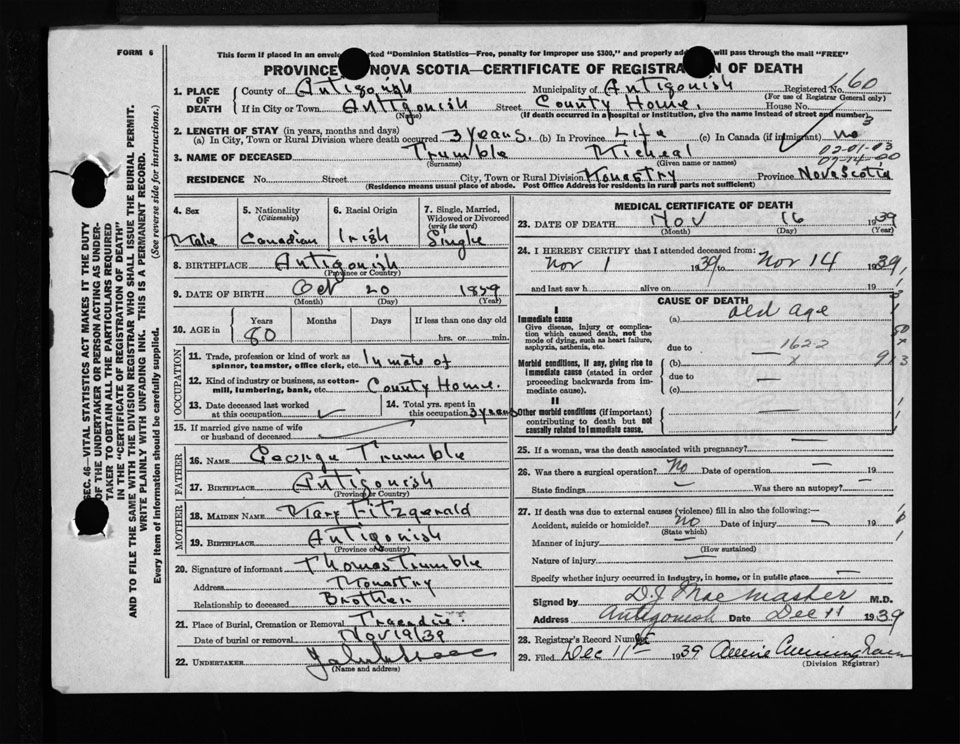 FORM 6
This form if placed in an envelo marked "Dominion Statistics—Free, penalty for improper use $300," and properly ad will pass through the mail "FREE"
PROVINCE NOVA SCOTIA—CERTIFICATE OF REGISTRA N OF DEATH
1. PLACE OF DEATH
County of Antigonish Municipality of Antigonish Registered No. 160
(For use of Registrar General only)
If in City or Town Antigonish Street County Home. House No.
(Name) (If death occurred in a hospital or institution, give the name instead of street and number)
2. LENGTH OF STAY (in years, months and days)
(a) In City, Town or Rural Division where death occurred 3 years. (b) In Province Life (c) In Canada (if immigrant) no
3
02-01-03
07-14-00
3. NAME OF DECEASED Trumble Micheal
(Surname) (Given name or names)
RESIDENCE No. Street City, Town or Rural Division Monastry Province Nova Scotia
(Residence means usual place of abode. Post Office Address for residents in rural parts not sufficient)
4. Sex Male
5. Nationality (Citizenship) Canadian
6. Racial Origin Irish
7. Single, Married, Widowed or Divorced (write the word) Single
8. BIRTHPLACE Antigonish
(Province or Country)
9. DATE OF BIRTH Oct 20 1859
(Month) (Day) (Year)
10. AGE in Years Months Days If less than one day old
80 hrs. or min.
OCCUPATION
11. Trade, profession or kind of work as spinner, teamster, office clerk, etc. Inmate of
12. Kind of industry or business, as cotton-mill, lumbering, bank, etc. County Home.
13. Date deceased last worked at this occupation
14. Total yrs. spent in this occupation 3 years
15. If married give name of wife or husband of deceased
FATHER
16. Name George Trumble
17. Birthplace Antigonish
(Province or Country)
MOTHER
18. MAIDEN NAME Mary Fitzgerald
19. BIRTHPLACE Antigonish
(Province or Country)
20. Signature of informant Thomas Trumble
Address Monastry
Relationship to deceased Brother
21. Place of Burial, Cremation or Removal Tracadie
Date of burial or removal Nov 19/39
22. UNDERTAKER
(Name and address)
MEDICAL CERTIFICATE OF DEATH
23. DATE OF DEATH Nov 16 1939
(Month) (Day) (Year)
24. I HEREBY CERTIFY that I attended deceased from:
Nov 1 1939 to Nov 14 1939
and last saw h alive on 19
CAUSE OF DEATH
I
Immediate cause (a) old age
Give disease, injury or complication which caused death, not the mode of dying, such as heart failure, asphyxia, asthenia, etc.
due to 162-2
Morbid conditions, if any, giving rise to immediate cause (stated in order proceeding backwards from immediate cause).
(b) x
due to —
(c) —
II
Other morbid conditions (if important) contributing to death but not causally related to immediate cause.
25. If a woman, was the death associated with pregnancy? —
26. Was there a surgical operation? No Date of operation — 19
State findings — Was there an autopsy? —
27. If death was due to external causes (violence) fill in also the following:—
Accident, suicide or homicide? no Date of injury — 19
(State which)
Manner of injury —
(How sustained)
Nature of injury —
Specify whether injury occurred in industry, in home, or in public place —
Signed by D.J. MacMaster M.D.
Address Antigonish Date Dec 11 1939
28. Registrar's Record Number
29. Filed Dec 11th 1939
(Division Registrar)
SEC. 46—VITAL STATISTICS ACT MAKES IT THE DUTY
OF THE UNDERTAKER OR PERSON ACTING AS UNDER-
TAKER TO OBTAIN ALL THE PARTICULARS REQUIRED
IN THE "CERTIFICATE OF REGISTRATION OF DEATH"
AND TO FILE THE SAME WITH THE DIVISION REGISTRAR WHO SHALL ISSUE THE BURIAL PERMIT.
WRITE PLAINLY WITH UNFADING INK. THIS IS A PERMANENT RECORD.
Every item of information should be carefully supplied. (See reverse side for instructions.)